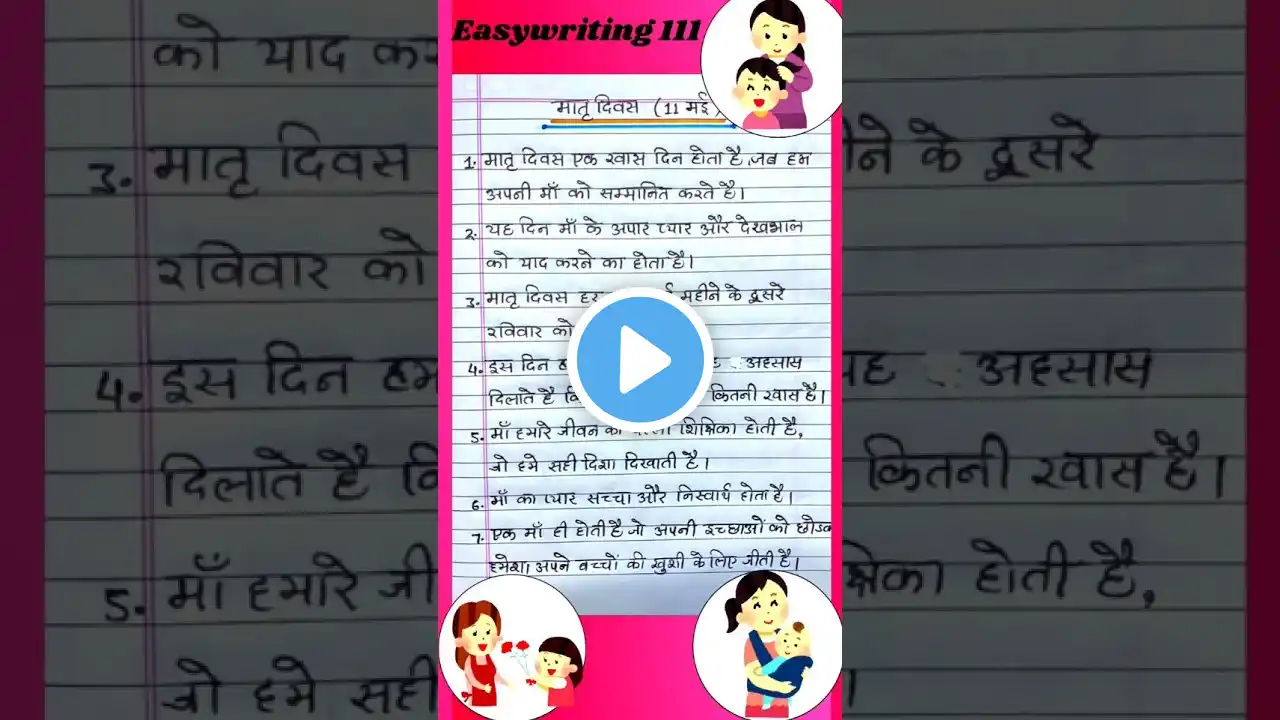 Easywriting 111
मातृ दिवस (11 मई)
1. मातृ दिवस एक खास दिन होता है, जब हम
अपनी माँ को सम्मानित करते है।
2. यह दिन माँ के अपार प्यार और देखभाल
को याद करने का होता है।
3. मातृ दिवस हर महीने के दूसरे
रविवार को
4. इस दिन अहसास
दिलाते है कितनी खास है।
5. माँ हमारे जीवन शिक्षिका होती है,
जो हमे सही दिशा दिखाती है।
6. माँ का प्यार सच्चा और निस्वार्थ होता है।
7. एक माँ ही होती है जो अपनी इच्छाओं को
हमेशा अपने बच्चों की खुशी के लिए जीती है।
को याद
3. मातृ दिवस
के दूसरे
रविवार को
4. इस दिन हम
अहसास
दिलाते है
कितनी खास है।
5. माँ हमारे
होती है,
जो हमे सही